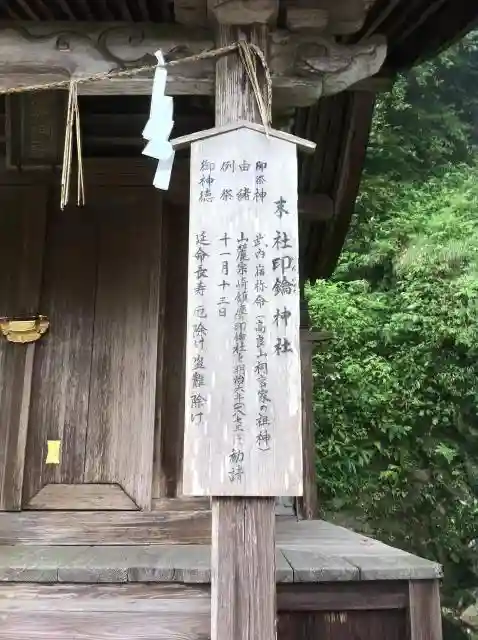 末社印鑰神社
御祭神 武内宿祢命(高良山祠官家の祖神)
由緒 山麓宗崎鎮座印鑰神社を明治六年(一八七三)に勧請
例祭 十一月十三日
御神徳 延命長寿 厄除け 盗難除け